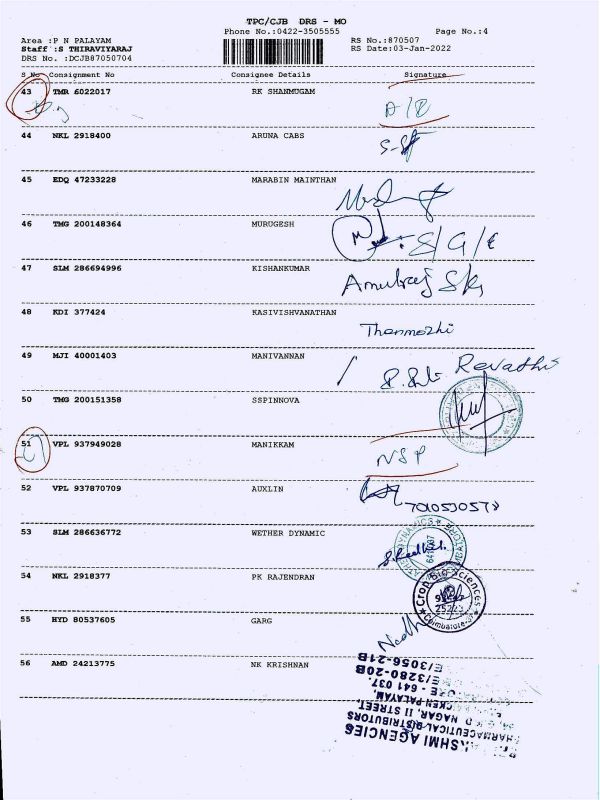 TPC/CJB DRS - MO
Phone No.:0422-3505555
Page No.:4
Area :P N PALAYAM
Staff :S THIRAVIYARAJ
DRS No. :DCJB87050704
RS No.:870507
RS Date:03-Jan-2022
S No Consignment No Consignee Details Signature
43 TMR 6022017 RK SHANMUGAM
44 NKL 2918400 ARUNA CABS
45 EDQ 47233228 MARABIN MAINTHAN
46 TMG 200148364 MURUGESH
S/G/E
47 SLM 286694996 KISHANKUMAR
48 KDI 377424 KASIVISHVANATHAN
Thenmozhi
49 MJI 40001403 MANIVANNAN
Revathi
50 TMG 200151358 SSPINNOVA
51 VPL 937949028 MANIKKAM
NSP
52 VPL 937870709 AUXLIN
53 SLM 286636772 WETHER DYNAMIC
54 NKL 2918377 PK RAJENDRAN
Crop Bio Sciences
Coimbatore
55 HYD 80537605 GARG
56 AMD 24213775 NK KRISHNAN
SHMI AGENCIES
PHARMACEUTICAL DISTRIBUTORS
NAGAR, II STREET,
CKEN PALAYAM,
ORE - 641 037.
E/3280-20B
E/3056-21B